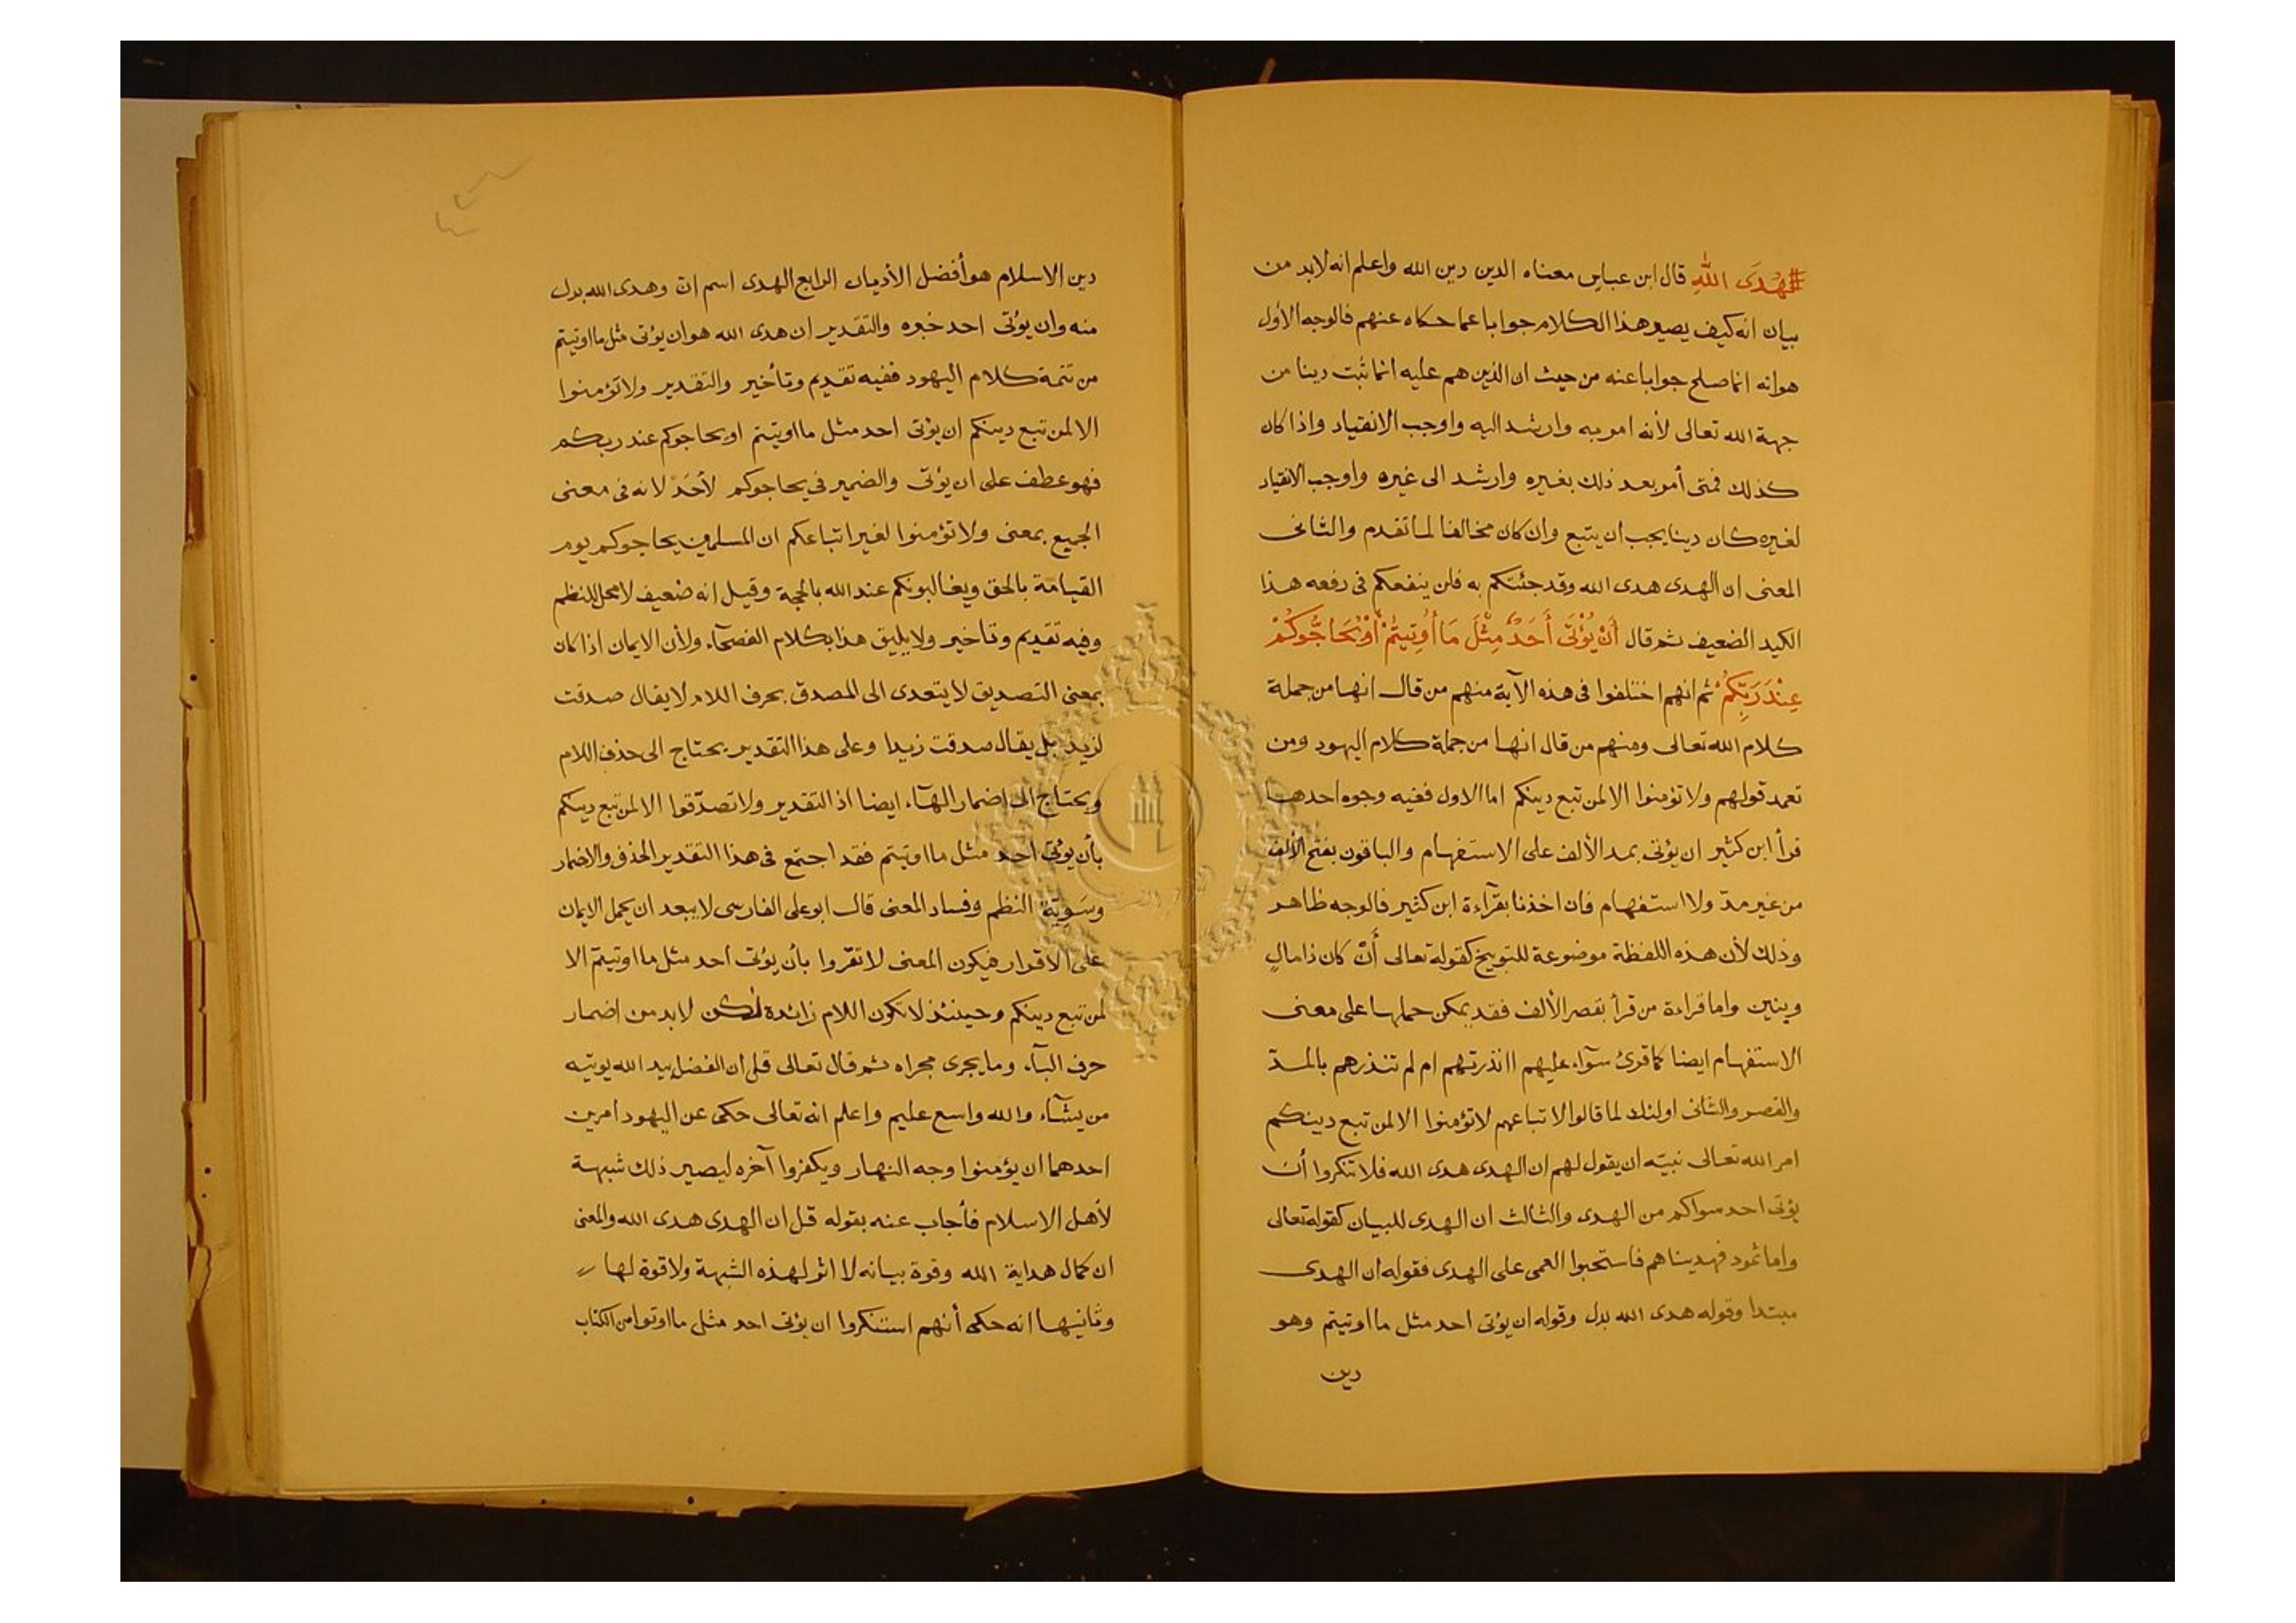 هُدَى اللّٰهِ قال ابن عباس معناه الدين دين الله واعلم انه لابد من
بيان انه كيف يصير هذا الكلام جوابا عما حكاه عنهم فالوجه الأول
هو انه انما صلح جوابا عنه من حيث ان الذين هم عليه انما ثبت دينا من
جهة الله تعالى لأنه امر به وارشد اليه واوجب الانقياد واذا كان
كذلك فمتى أمر بعد ذلك بغيره وارشد الى غيره واوجب الانقياد
لغيره كان دينا يجب ان يتبع وان كان مخالفا لما تقدم والثانى
المعنى ان الهدى هدى الله وقد جئتكم به فلن ينفعكم فى دفعه هذا
الكيد الضعيف ثم قال أَنْ يُؤْتَى أَحَدٌ مِثْلَ مَا أُوتِيتُمْ أَوْ يُحَاجُّوكُمْ
عِنْدَ رَبِّكُمْ ثم انهم اختلفوا فى هذه الآية منهم من قال انها من جملة
كلام الله تعالى ومنهم من قال انها من جملة كلام اليهود ومن
تعمد قولهم ولا تؤمنوا الا لمن تبع دينكم اما الاول ففيه وجوه احدها
قرأ ابن كثير ان يؤتى بمد الألف على الاستفهام والباقون بفتح الألف
من غير مدّ ولا استفهام فان اخذنا بقرآءة ابن كثير فالوجه ظاهر
وذلك لأن هذه اللفظة موضوعة للتوبيخ كقوله تعالى أَنّ كان ذا مالٍ
وبنين واما قراءة من قرأ بقصر الألف فقد يمكن حملها على معنى
الاستفهام ايضا كما قرئ سوآء عليهم اانذرتهم ام لم تنذرهم بالمدّ
والقصر والثانى اولئك لما قالوا لاتباعهم لا تؤمنوا الا لمن تبع دينكم
امر الله تعالى نبيّه ان يقول لهم ان الهدى هدى الله فلا تنكروا أن
يؤتى احد سواكم من الهدى والثالث ان الهدى للبيان كقوله تعالى
واما ثمود فهديناهم فاستحبوا العمى على الهدى فقوله ان الهدى
مبتدا وقوله هدى الله بدل وقوله ان يؤتى احد مثل ما اوتيتم وهو
دين
دين الاسلام هو أفضل الأديان الرابع الهدى اسم انّ وهدى الله بدل
منه وان يؤتى احد خبره والتقدير ان هدى الله هو ان يؤتى مثل ما اوتيتم
من تتمة كلام اليهود ففيه تقديم وتأخير والتقدير ولا تؤمنوا
الا لمن تبع دينكم ان يؤتى احد مثل ما اوتيتم او يحاجوكم عند ربكم
فهو عطف على ان يؤتى والضمير فى يحاجوكم لأحَدٌ لانه فى معنى
الجميع بمعنى ولا تؤمنوا لغير اتباعكم ان المسلمين يحاجوكم يوم
القيامة بالحق ويغالبونكم عند الله بالحجة وقيل انه ضعيف لا محل للنظم
وفيه تقديم وتاخير ولا يليق هذا بكلام الفصحآء ولأن الايمان اذا كان
بمعنى التصديق لا يتعدى الى المصدق بحرف اللام لا يقال صدقت
لزيد بل يقال صدقت زيدا وعلى هذا التقدير يحتاج الى حذف اللام
ويحتاج الى اضمار الهآء ايضا اذ التقدير ولا تصدّقوا الا لمن تبع دينكم
بأن يؤتى احد مثل ما اوتيتم فقد اجتمع فى هذا التقدير الحذف والاضمار
وسَوِيَّة النظم وفساد المعنى قال ابو على الفارسى لا يبعد ان يحمل الايمان
على الاقرار فيكون المعنى لا تقرّوا بأن يؤتى احد مثل ما اوتيتم الا
لمن تبع دينكم وحينئذ لا تكون اللام زائدة لكن لابد من اضمار
حرف البآء وما يجرى مجراه ثم قال تعالى قل ان الفضل بيد الله يوتيه
من يشآء والله واسع عليم واعلم انه تعالى حكى عن اليهود امرين
احدهما ان يؤمنوا وجه النهار ويكفروا آخره ليصير ذلك شبهة
لأهل الاسلام فأجاب عنه بقوله قل ان الهدى هدى الله والمعنى
ان كمال هداية الله وقوة بيانه لا اثر لهذه الشبهة ولا قوة لها
وثانيها انه حكى أنهم استنكروا ان يؤتى احد مثل ما اوتوا من الكتاب